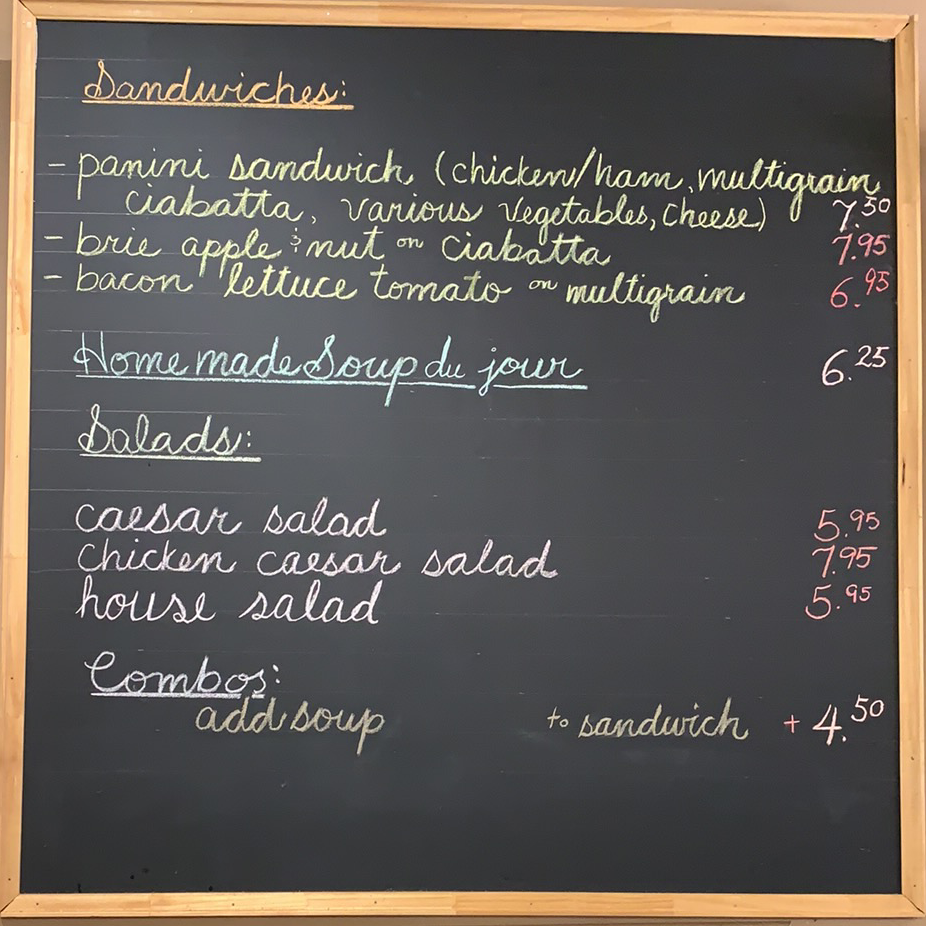 Sandwiches:
- panini sandwich (chicken/ham, multigrain
ciabatta, various vegetables, cheese) 7.50
- brie apple & nut on ciabatta 7.95
- bacon lettuce tomato on multigrain 6.95
Homemade Soup du jour 6.25
Salads:
caesar salad 5.95
chicken caesar salad 7.95
house salad 5.95
Combos:
add soup to sandwich + 4.50